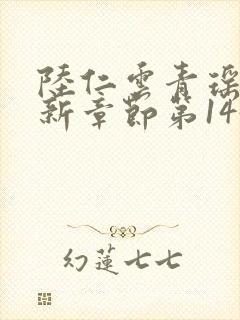 陸仁雲青瑤
新章節第14
幻蓮七七